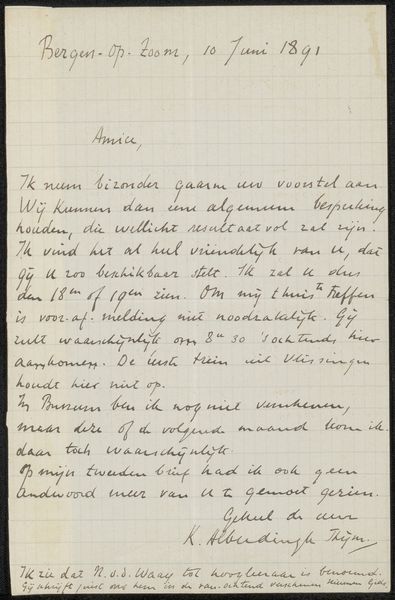 Bergen-Op-Zoom, 10 Juni 1891
Amice,
Ik neem bizonder gaarne uw voorstel aan
Wij kunnen dan eene algemeene bespreking
houden, die wellicht resultaatvol zal zijn.
Ik vind het al heel vriendelijk van u, dat
gij u zoo beschikbaar stelt. Ik zal u dus
den 18en of 19en zien. Om mij thuis te treffen
is voor-af-melding niet noodzakelijk. Gij
zult waarschijnlijk om 8u 30 's ochtends hier
aankomen. De eerste trein uit Vlissingen
houdt hier niet op.
In Bussum ben ik nog niet verschenen,
maar deze of de volgende maand kom ik
daar toch waarschijnlijk.
Op mijn tweeden brief had ik ook geen
andwoord meer van u te gemoet gezien.
Geheel de uwe
K. Alberdingk Thijm.
Ik zie dat N. v.d. Waay tot hoogleeraar is benoemd.
Gij schrijft juist over hem in de van-achtend verschenen Nieuwen Gids